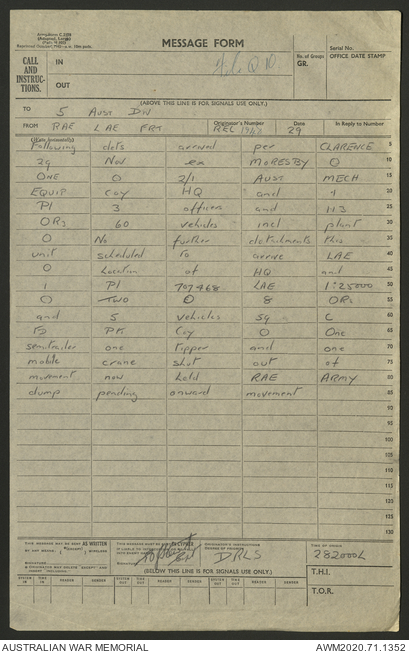 MESSAGE FORM
Serial No.
CALL AND INSTRUC- TIONS.
IN
No. of Groups GR.
OFFICE DATE STAMP
OUT
(ABOVE THIS LINE IS FOR SIGNALS USE ONLY.)
TO 5 Aust Div
FROM RAE LAE FRT Originator's Number REC Date 29 In Reply to Number
Following dets arrived per CLARENCE 5
29 Nov ex MORESBY O 10
ONE O 2/1 AUST MECH 15
EQUIP Coy HQ and 1 20
Pl 3 officers and 113 25
ORs 60 vehicles incl plant 30
O No further detachments this 35
unit scheduled to arrive LAE 40
O Location of HQ and 45
1 Pl 707468 LAE 1:25000 50
O TWO O 8 ORs 55
and 5 vehicles Sq C 60
to PK Coy O One 65
semitrailer one ripper and one 70
mobile crane shut out of 75
movement now held RAE ARMY 80
dump pending onward movement 85
90
95
100
105
110
115
120
125
130
THIS MESSAGE MAY BE SENT AS WRITTEN BY ANY MEANS
DRLS
TIME OF ORIGIN
282000L
(BELOW THIS LINE IS FOR SIGNALS USE ONLY.)
T.H.I.
SYSTEM IN TIME IN READER SENDER SYSTEM OUT TIME OUT READER SENDER SYSTEM OUT TIME OUT READER SENDER
T.O.R.
AUSTRALIAN WAR MEMORIAL AWM2020.71.1352